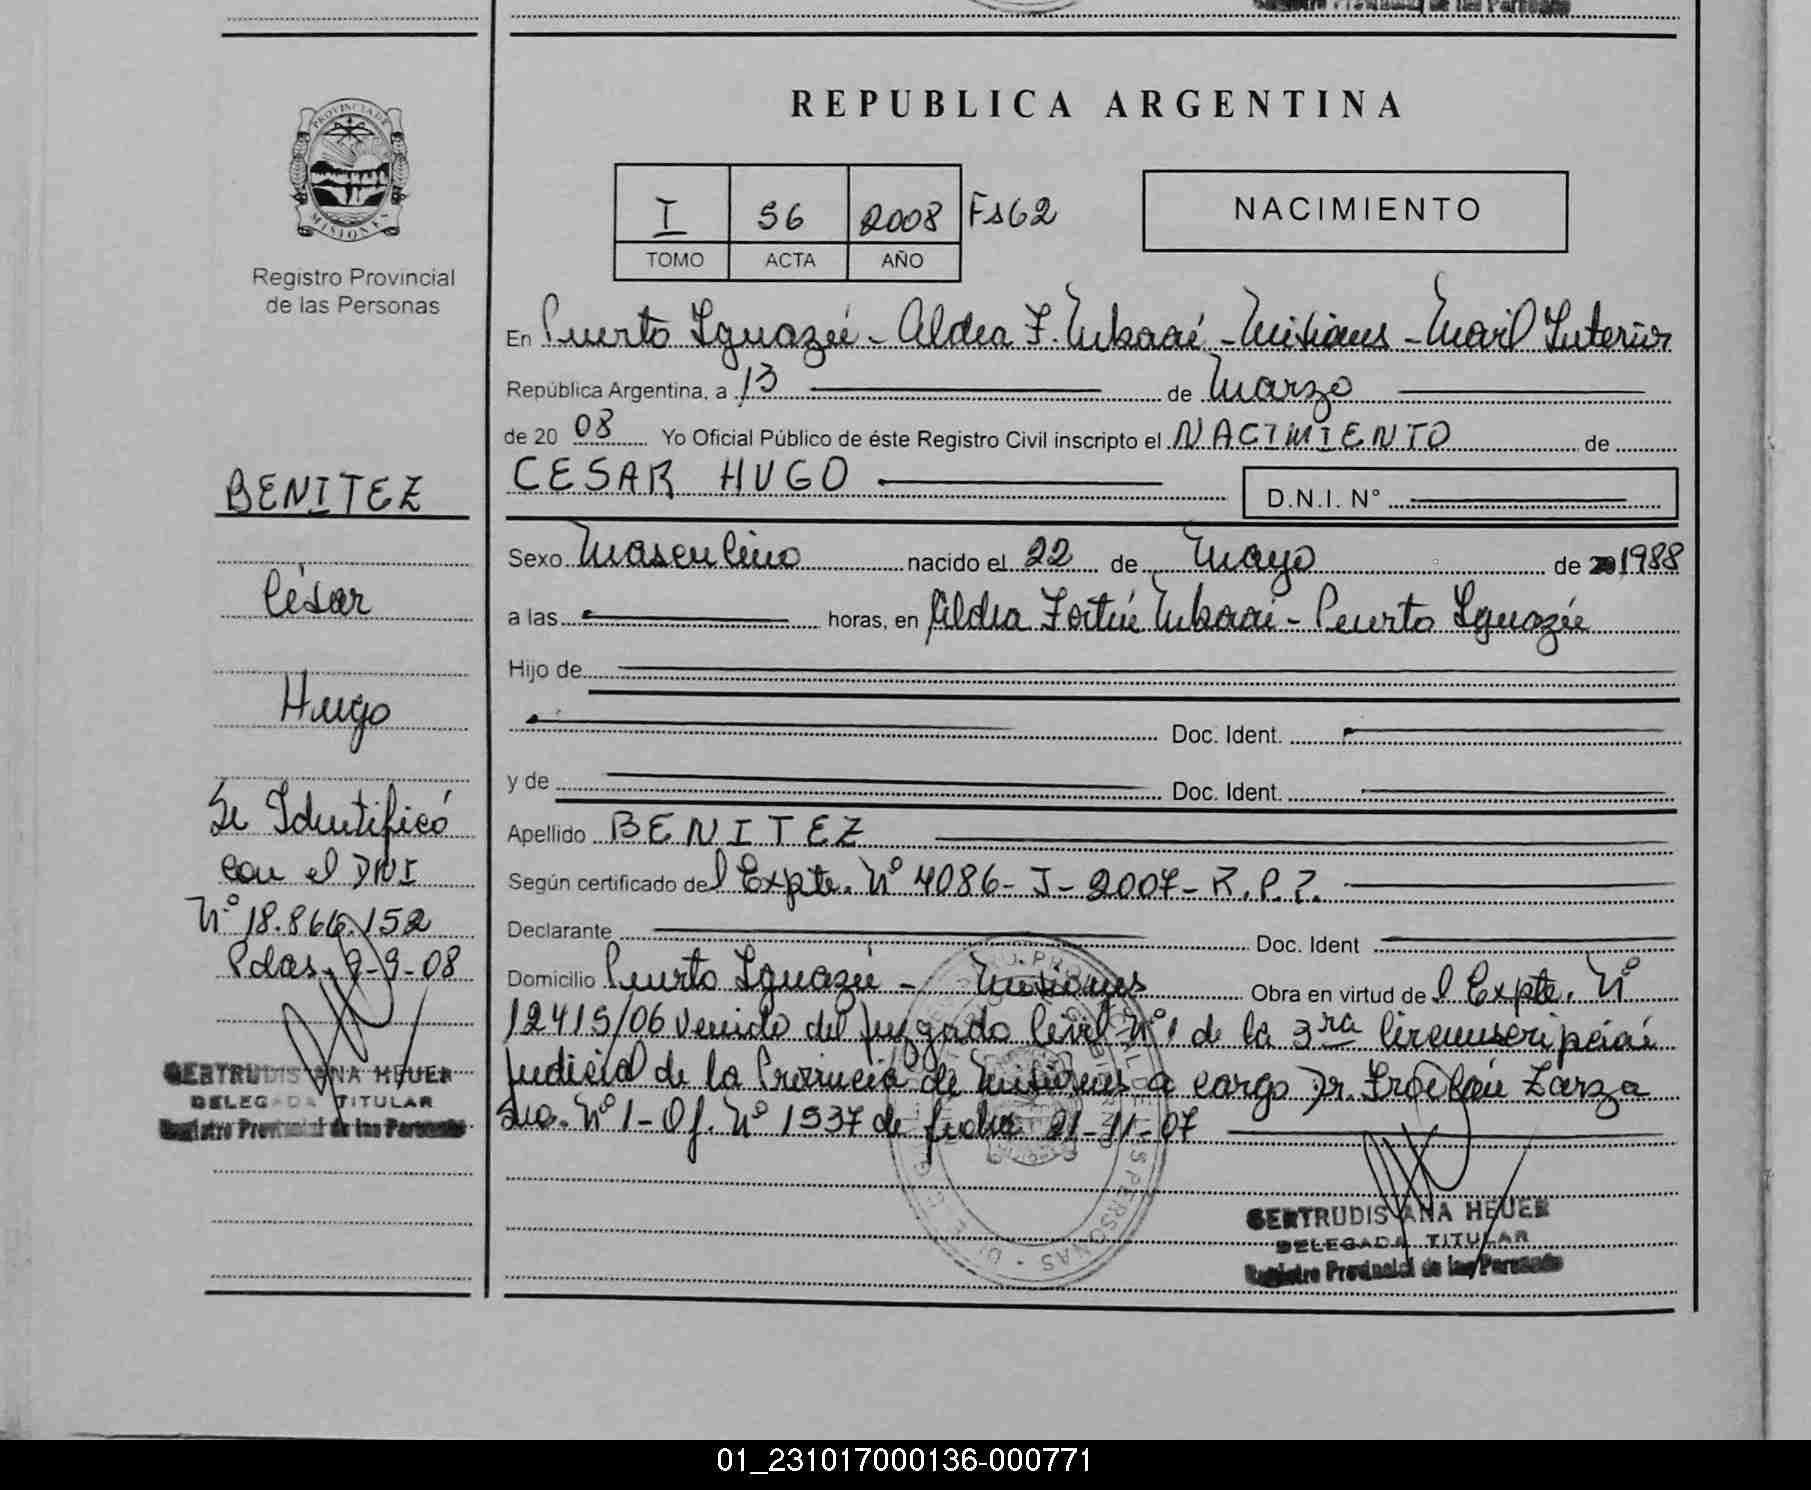 REPUBLICA ARGENTINA
PROVINCIA DE
MISIONES
Registro Provincial
de las Personas
I 56 2008 Fs 62
TOMO ACTA AÑO
NACIMIENTO
En Puerto Iguazú - Aldea F. Mbororé - Misiones - Movil Interior
República Argentina, a 13 de Marzo
de 20 08 Yo Oficial Público de éste Registro Civil inscripto el NACIMIENTO de
CESAR HUGO D.N.I. N°
Sexo Masculino nacido el 22 de Mayo de 1988
a las horas, en Aldea Fortín Mbororé - Puerto Iguazú
Hijo de
Doc. Ident.
y de Doc. Ident.
Apellido BENITEZ
Según certificado del Expte. N° 4086 - J - 2007 - R.P.P.
Declarante Doc. Ident
Domicilio Puerto Iguazú - Misiones Obra en virtud del Expte. N°
12415/06 venido del Juzgado Civil N° 1 de la 3ra Circunscripción
Judicial de la Provincia de Misiones a cargo Dr. Froilán Zarza
N° 1 - Of. N° 1537 de fecha 21-11-07
GERTRUDIS ANA HEUER
DELEGADA TITULAR
Registro Provincial de las Personas
BENITEZ
César
Hugo
Se Identificó
con el DNI
N° 18.866.152
Pdas. 9-9-08
GERTRUDIS ANA HEUER
DELEGADA TITULAR
Registro Provincial de las Personas
01_231017000136-000771